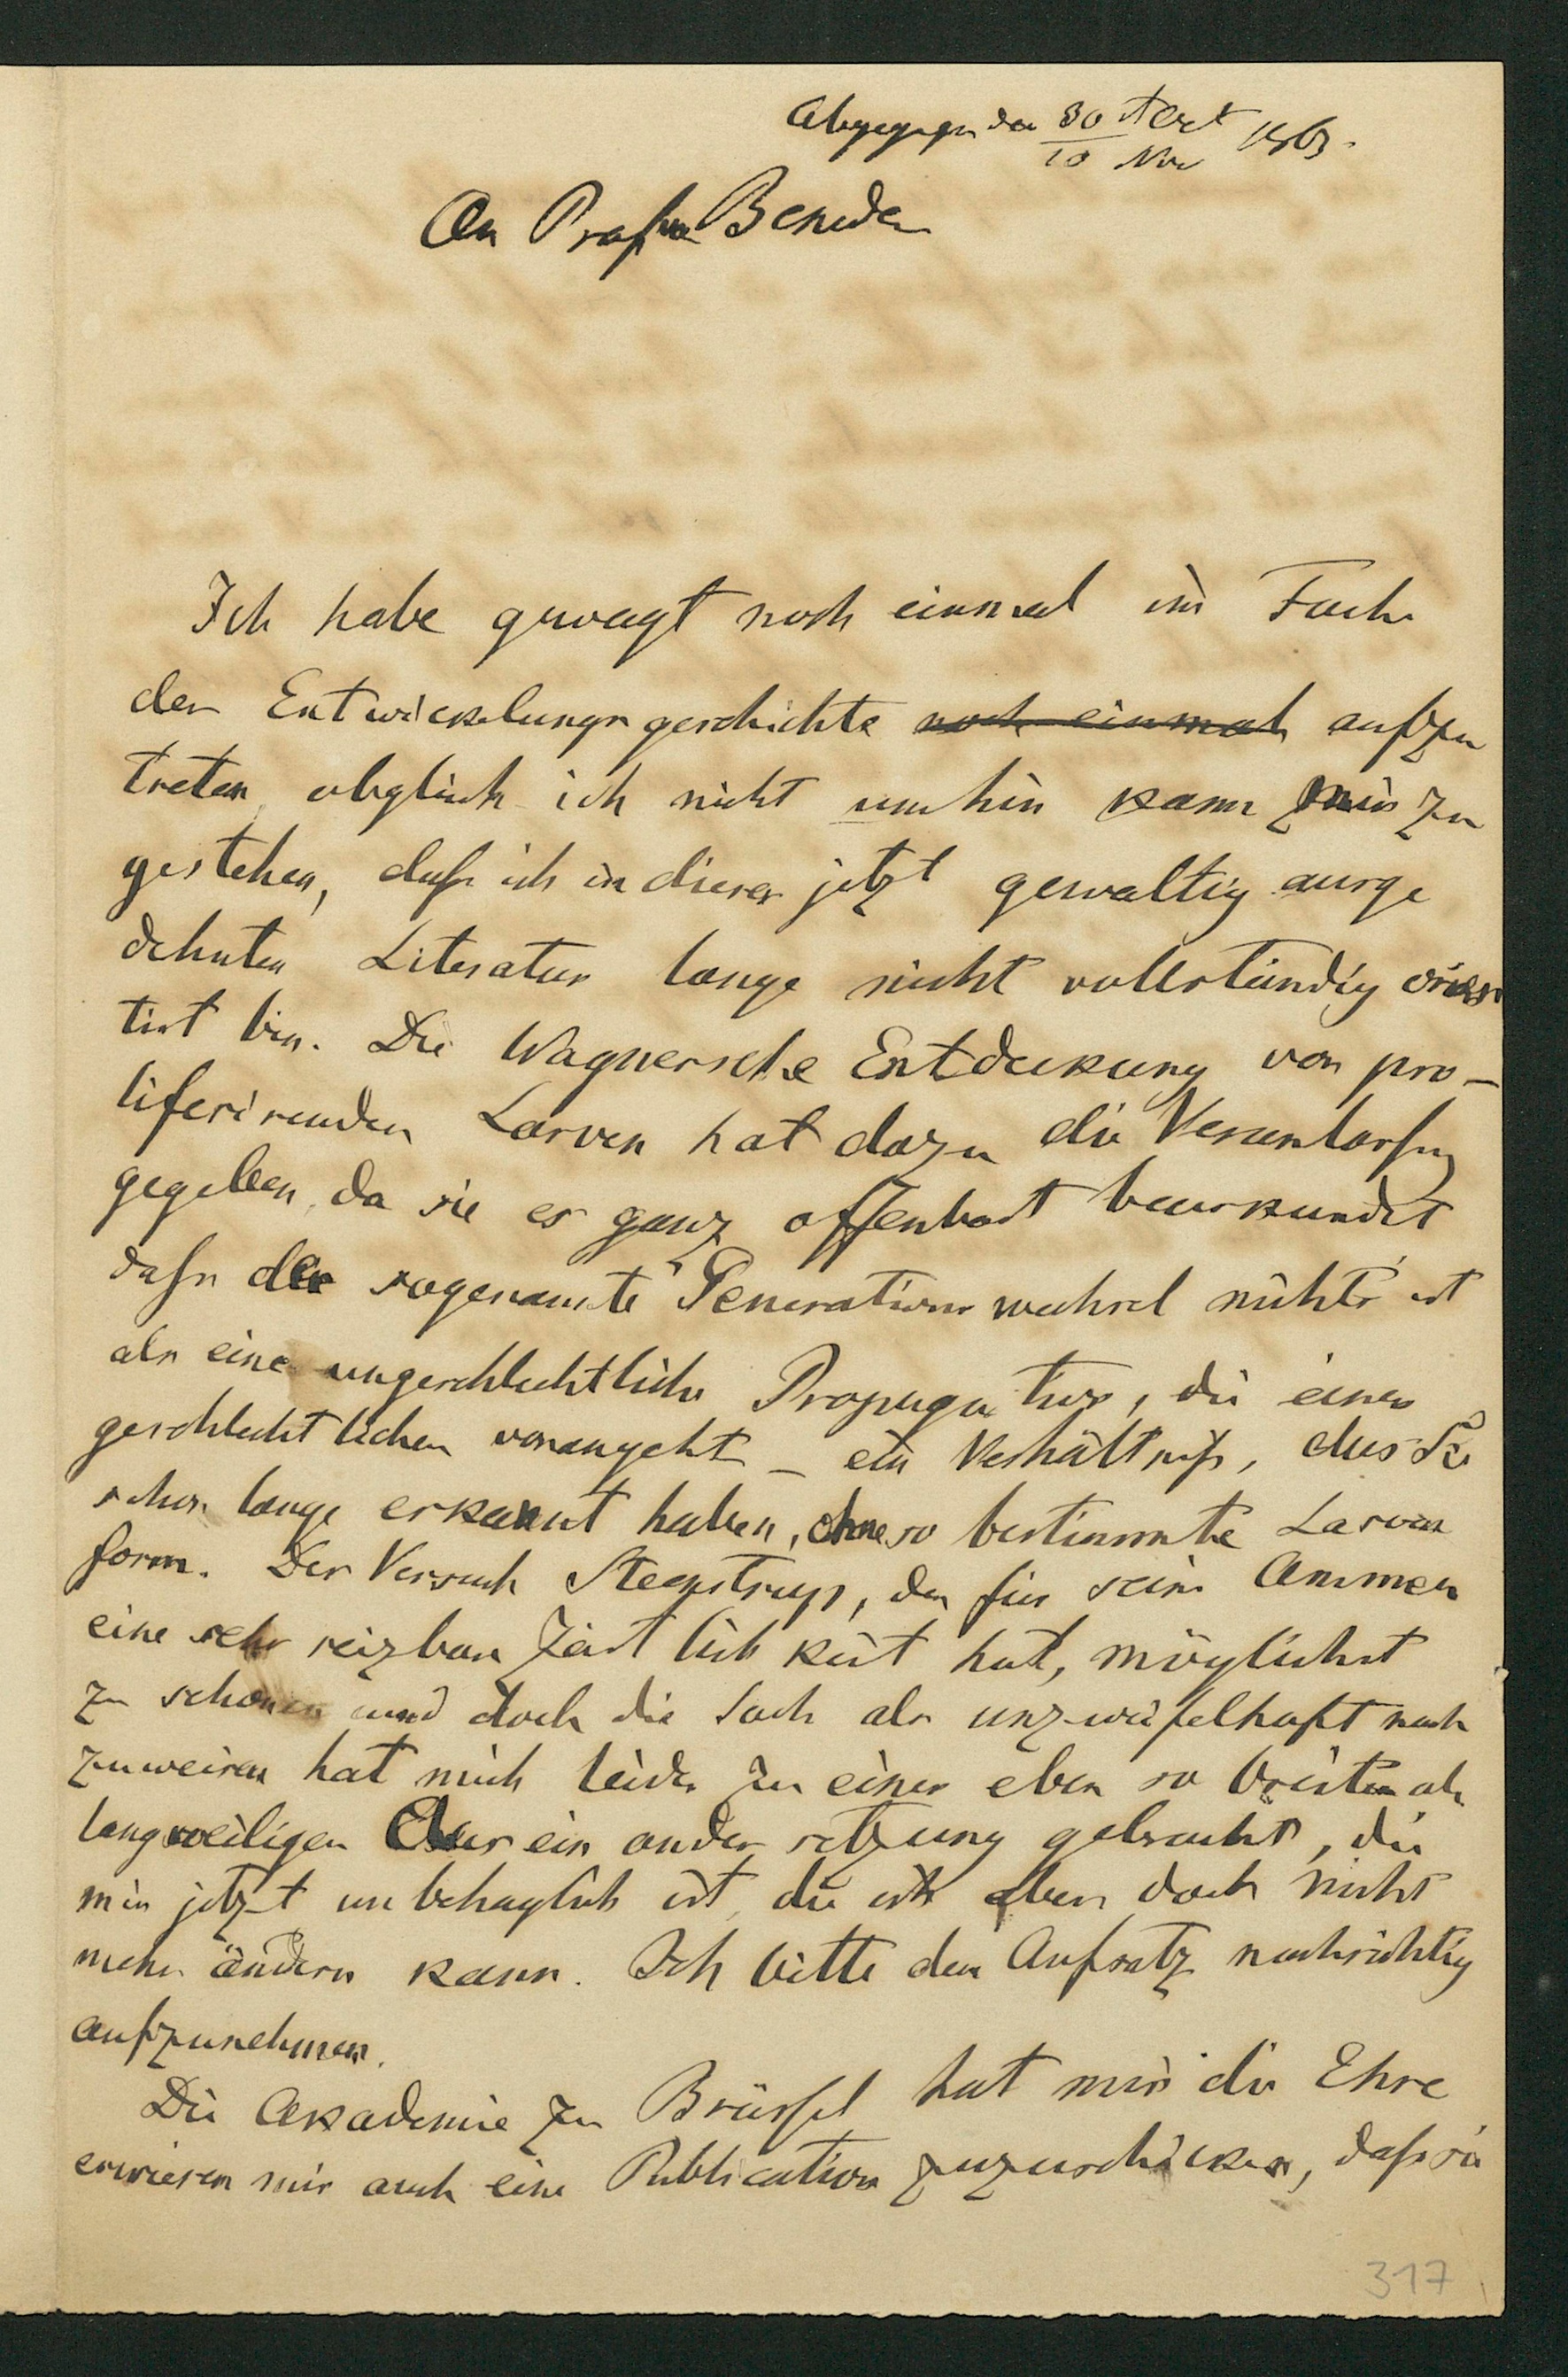 Abgegangen den 30 Oct / 10 Nov 1863.
An Prof. van Beneden
Ich habe gewagt noch einmal im Fache
der Entwickelungsgeschichte noch einmal aufzu
treten, obgleich ich nicht umhin kann mir zu
gestehen, daß ich in dieser jetzt gewaltig ausge
dehnten Literatur lange nicht vollständig orien
tirt bin. Die Wagnersche Entdeckung von pro-
liferirenden Larven hat dazu die Veranlassung
gegeben, da sie es ganz offenbart beurkundet
daß der sogenannte Generationswechsel nichts ist
als eine ungeschlechtliche Propagation, die einer
geschlechtlichen vorangeht – ein Verhältniß, das Sie
schon lange erkannt haben, ohne so bestimmte Larven
form. Der Versuch Steenstrup, der für seine Ammen
eine sehr reizbare Zärtlichkeit hat, möglichst
zu schonen und doch die Sache als unzweifelhaft nach
zuweisen hat mich leider zu einer eben so breiten als
langweiligen Auseinandersetzung gebracht, die
mir jetzt unbehaglich ist, die ich aber doch nicht
mehr ändern kann. Ich bitte den Aufsatz nachsichtig
aufzunehmen.
Die Akademie zu Brüssel hat mir die Ehre
erwiesen mir auch eine Publication zuzuschicken, daß sie
317